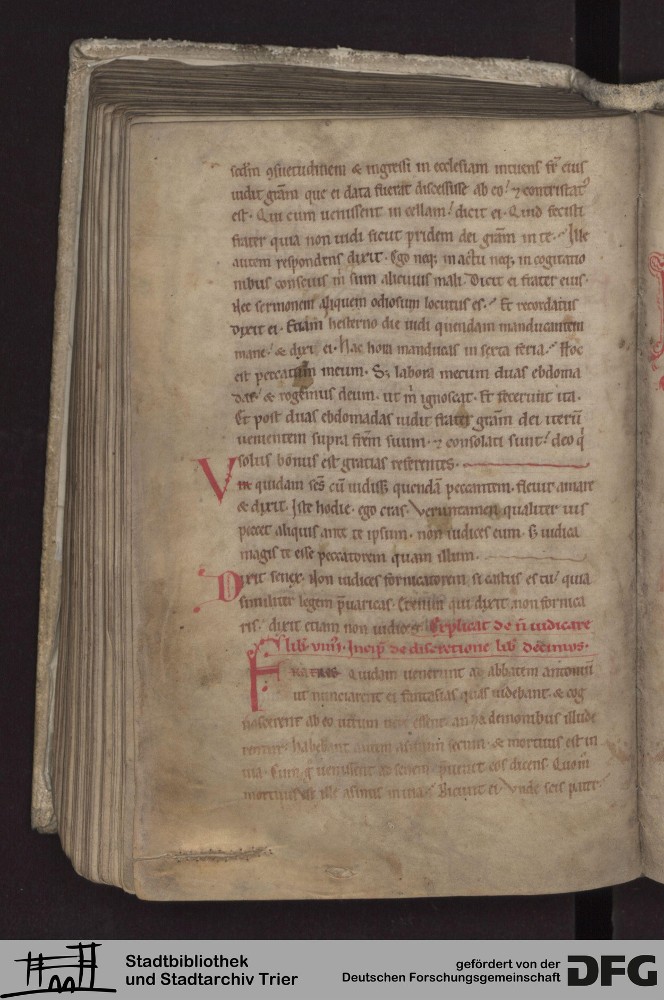 scdm ꝯsuetudinem & ingressi in ecclesiam intuens fr̄ eius
uidit grām que ei data fuerat discessisse ab eo! ⁊ contristatꝰ
est. Qui cum uenissent in cellam! dicit ei. Quid fecisti
frater quia non uidi sicut pridem dei grām in te. Ille
autem respondens dixit. Ego neqꝫ in actu neqꝫ in cogitatio
nibus conscius m̄ sum alicuius mali. Dicit ei frater eius.
Nec sermonem aliquem odiosum locutus es. Et recordatus
dixit ei. Etiam hesterno die uidi quendam manducantem
mane! & dixi ei. Hac hora manducas in sexta feria. Hoc
est peccatum meum. Sꝫ labora mecum duas ebdoma
das & rogemus deum. ut m̄ ignoscat. Et fecerunt ita.
Et post duas ebdomadas uidit frater grām dei iterū
uenientem supra frēm suum. ⁊ consolati sunt! deo q̇
solus bonus est gratias referentes.
Vne quidam sēs cū uidiss& quendā peccantem. fleuit amare
& dixit. Iste hodie. ego cras. Veruntamen qualiter uis
peccet aliquis ante te ipsum. non iudices eum. sꝫ iudica
magis te esse peccatorem quam illum.
Dixit senex. Non iudices fornicatorem si castus es tu! quia
similiter legem p̄uaricas. Etenim qui dixit non fornica
ris. dixit etiam non iudices. Explicat de n̄ iudicare
lib. viiii. Incip̄ de discretione lib decimus.
Fratres quidam uenerunt ad abbatem antoniū
ut nunciarent ei fantasias quas uidebant. & cog
noscerent ab eo utrum uere essent. an ha demonibus illude
rentur. habebant autem asinum secum. & mortuus est in
uia. Cum g̊ uenissent ad senem. p̄uenit eos dicens. Quom̄
mortuus est ille asinus in uia. Dicunt ei. Vnde scis pater
Stadtbibliothek
und Stadtarchiv Trier
gefördert von der
Deutschen Forschungsgemeinschaft
DFG